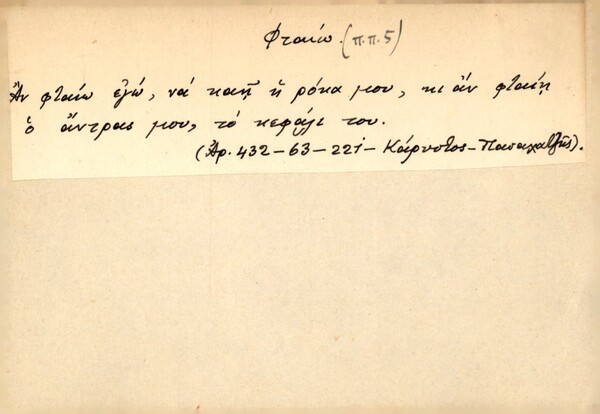 Φταίω. (π.π. 5)
Ἄν φταίω ἐγώ, νά καῇ ἡ ρόκα μου, κι ἄν φταίῃ
ὁ ἄντρας μου, τό κεφάλι του.
(Ἀρ. 432 – 63 – 221 – Κάρυστος – Παπαχατζῆς).